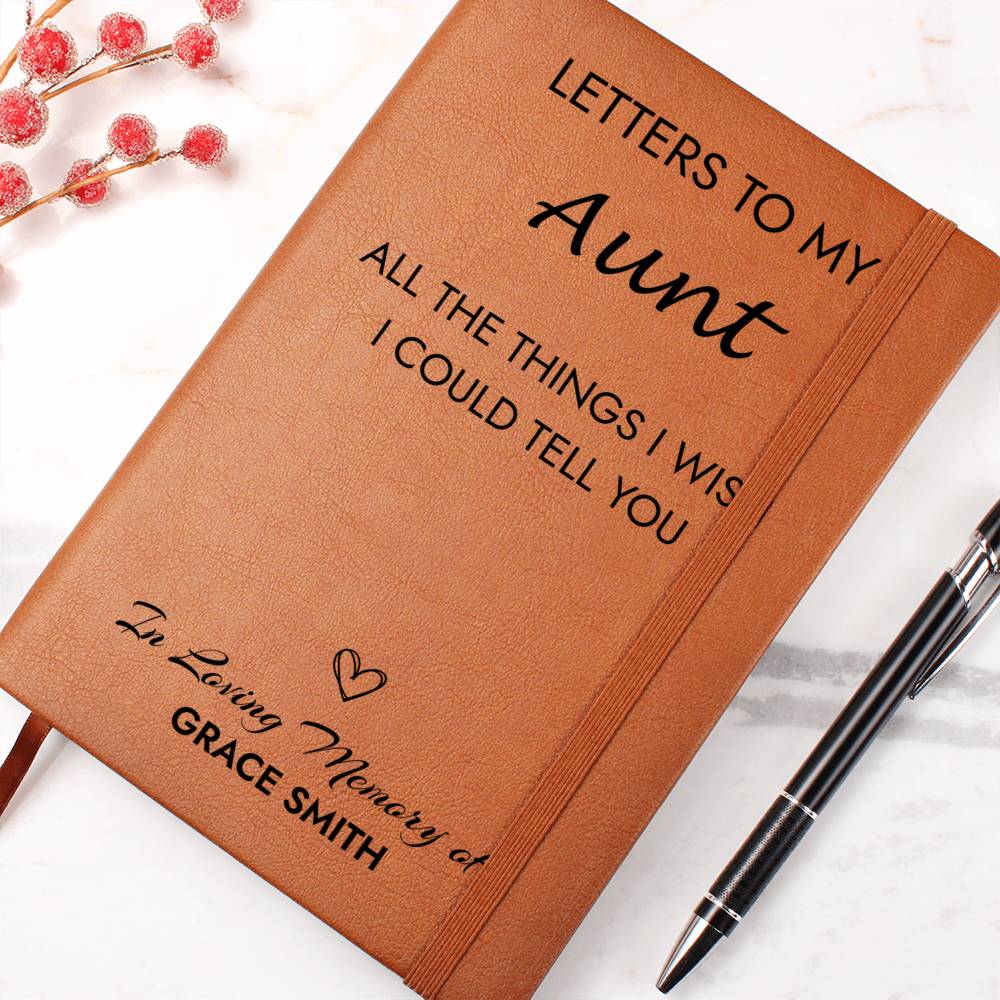 LETTERS TO MY
Aunt
ALL THE THINGS I WIS
I COULD TELL YOU
In Loving Memory of
GRACE SMITH